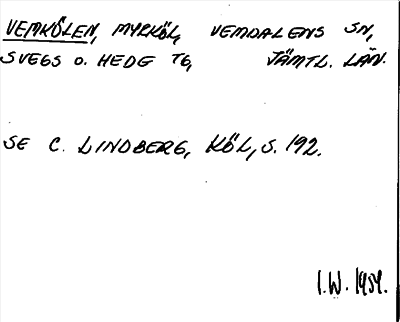 VEMKÖLEN, MYRKÖL, VEMDALENS SN,
SVEGS O. HEDE TG, JÄMTL. LÄN.
SE C. LINDBERG, KÖL, S. 192.
I.W. 1954.